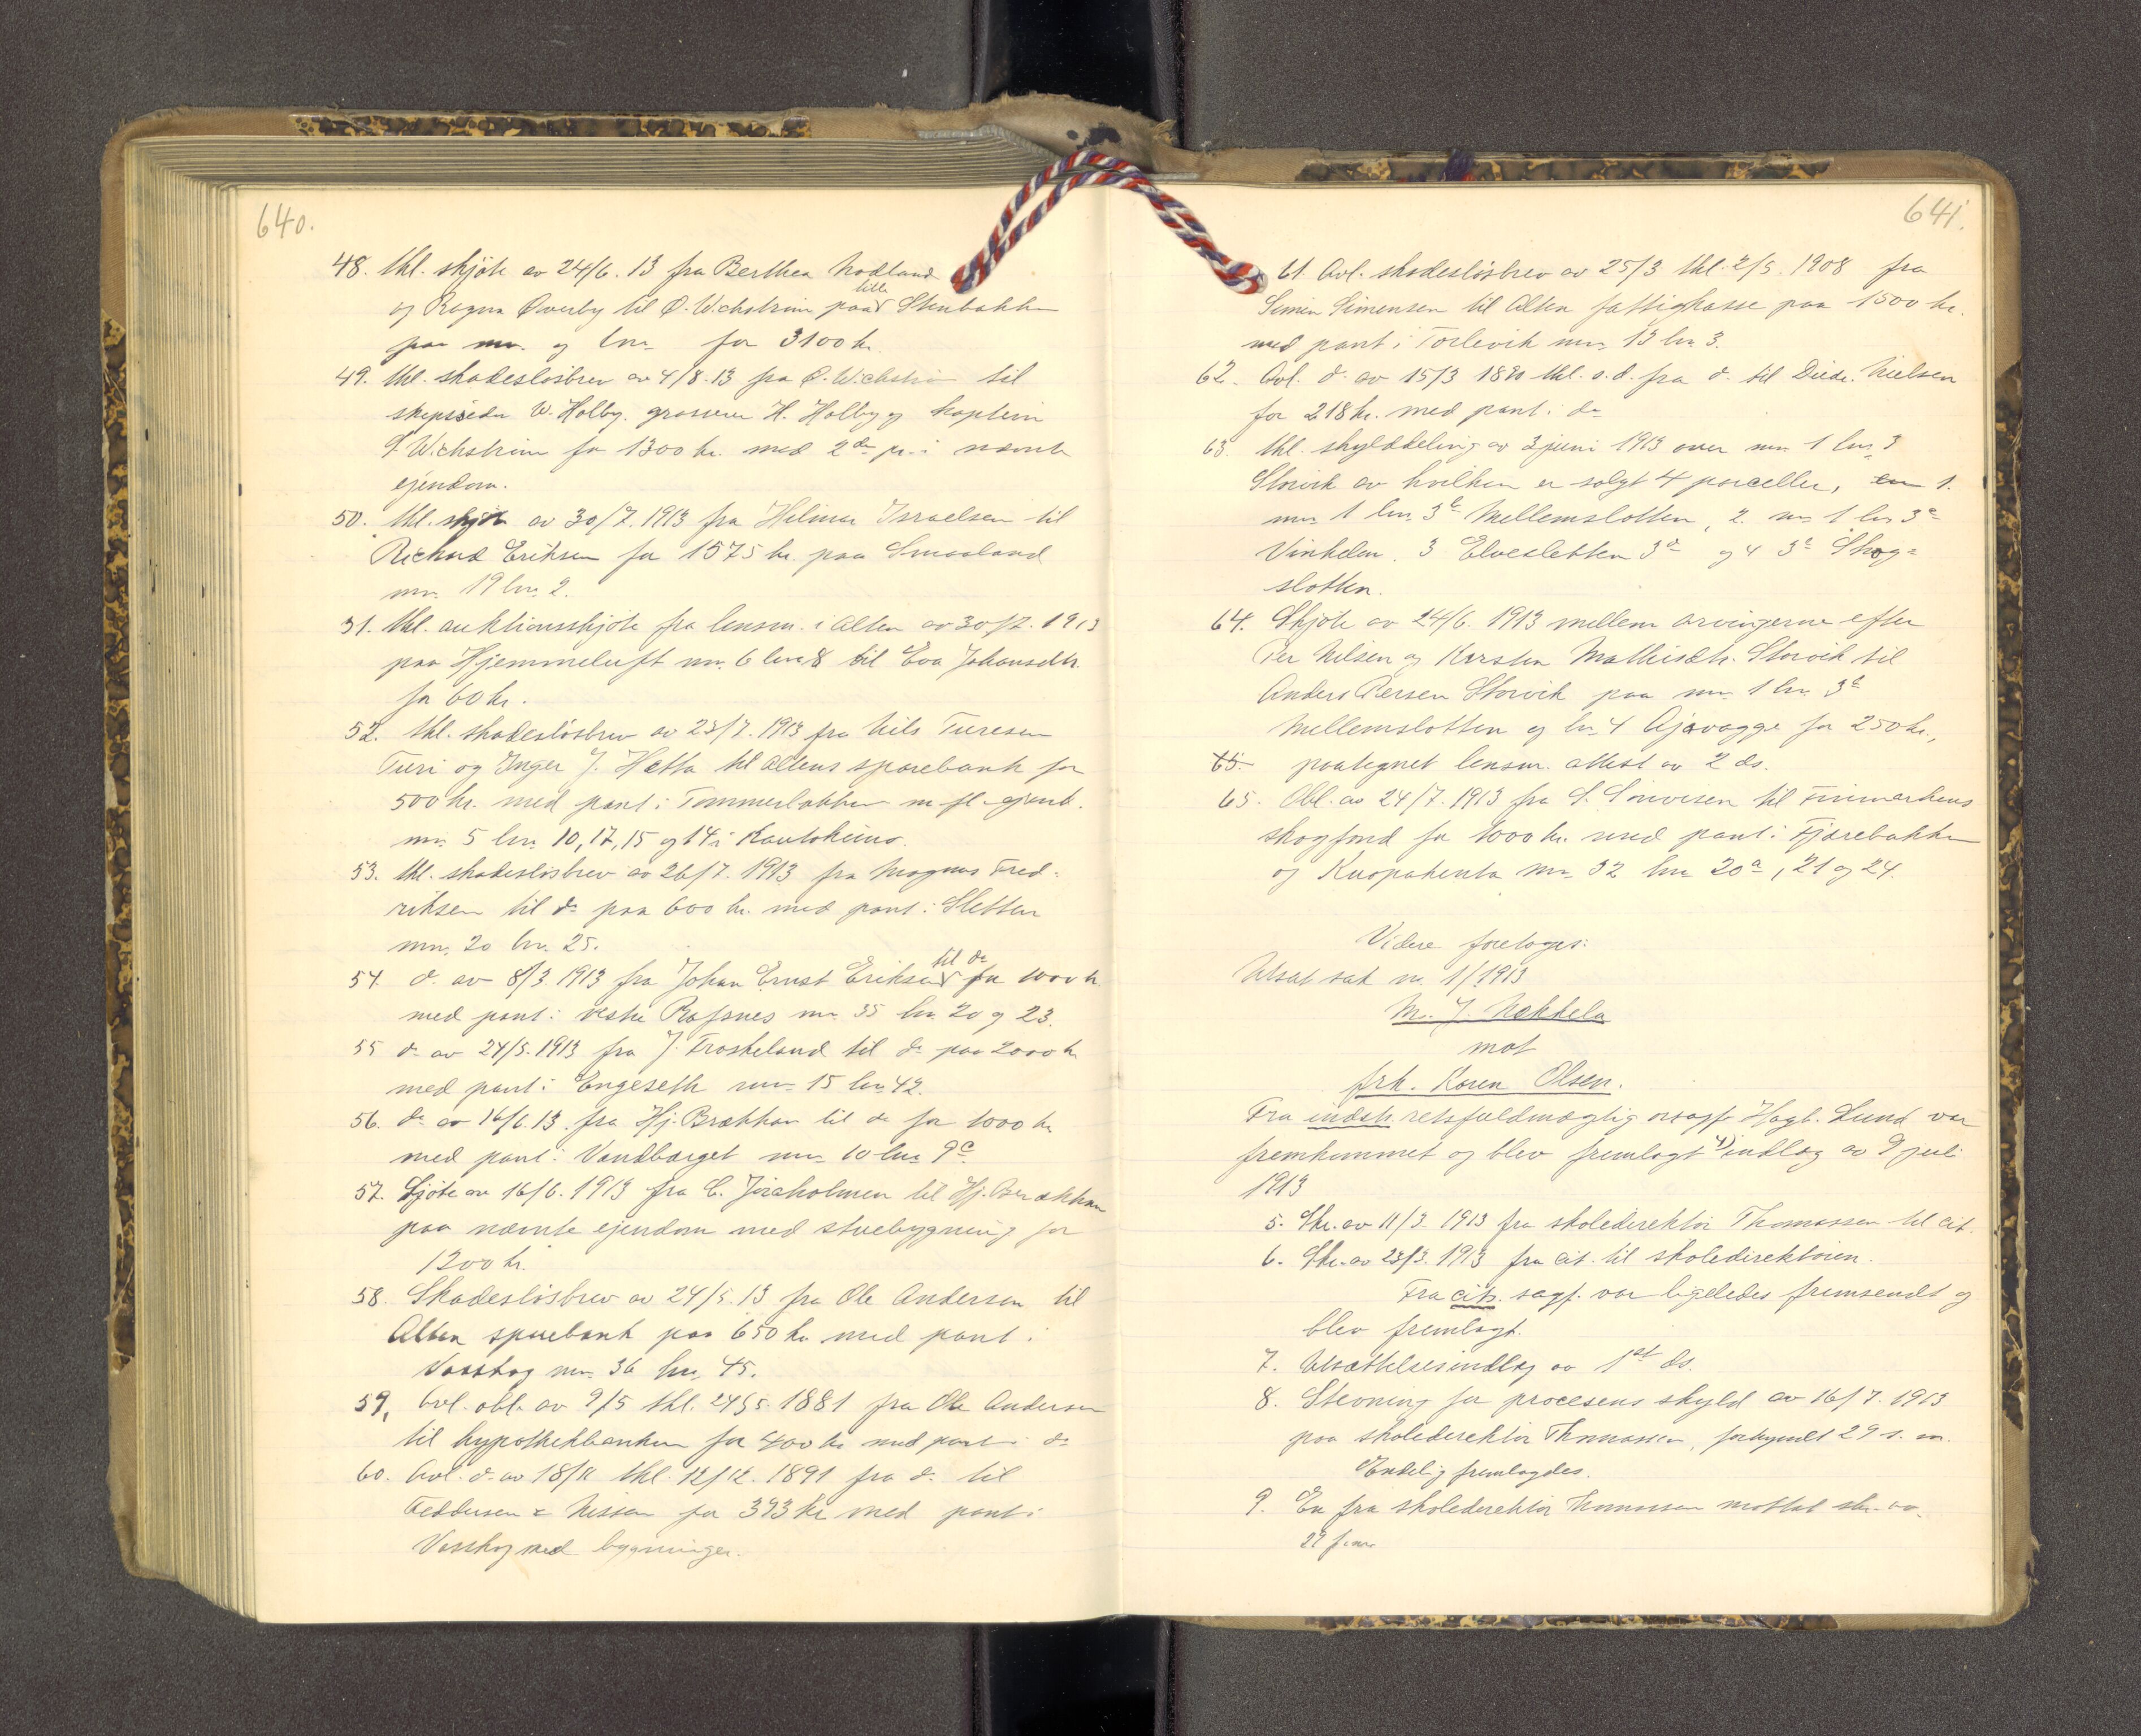 640.
48. thl. skjöte av 24/6. 13 fra Berthea Nodland
og Ragna Øverby til O. Wichstrøm paa lille Stenbakken
paa mnr. og lnr. for 3100 kr.
49. thl. skadeslösbrev av 4/8. 13 fra O. Wichstrøm til
skibsreder W. Holby, grosserer H. Holby og kaptein
Wichstrøm for 1300 kr. med 2den pr. i nævnte
ejendom.
50. thl. skjöte av 30/7. 1913 fra Hilmar Israelsen til
Richard Eriksen for 1575 kr. paa Smaaland
mnr. 19 lnr. 2.
51. thl. auktionsskjöte fra lensm. i Alten av 30/7. 1913
paa Hjemmeluft mnr. 6 lnr. 8 til Eva Johansdtr.
for 60 kr.
52. thl. skadeslösbrev av 23/7. 1913 fra Nils Turesen
Turi og Inger J. Hætta til Altens sparebank for
500 kr. med pant i Tømmerbakken m. fl. ejend.
mnr. 5 lnr. 10, 17, 15 og 14 i Kautokeino.
53. thl. skadeslösbrev av 26/7. 1913 fra Magnus Fred-
riksen til do paa 600 kr. med pant i Sletten
mnr. 20 lnr. 25.
54. do av 8/3. 1913 fra Johan Ernst Eriksen til do for 1000 kr.
med pant i vestre Rafsnes mnr. 35 lnr. 20 og 23.
55 do av 24/5. 1913 fra J. Froskeland til do paa 2000 kr
med pant i Engeseth mnr. 15 lnr. 42.
56. do av 16/6. 13. fra Hj. Brækkan til do for 1000 kr
med pant i Vandbærget mnr. 10 lnr. 9c.
57. Sjöte av 16/6. 1913 fra C. Jöraholmen til Hj. Brækkan
paa nævnte ejendom med stuebygning for
1200 kr.
58. Skadeslösbrev av 24/5. 13 fra Ole Andersen til
Alten sparebank paa 650 kr med pant i
Vasskog mnr. 36 lnr. 45.
59. Avl. obl. av 9/5 thl. 24/5. 1881 fra Ole Andersen
til hypothekbanken for 400 kr med pant i do
60. Avl. do av 18/11 thl. 12/12. 1891 fra do til
Feddersen & Nissen for 393 kr med pant i
Vasskog med bygninger.
641.
61. Avl. skadeslösbrev av 25/3 thl. 2/5. 1908 fra
Simon Simensen til Alten fattigkasse paa 1500 kr.
med pant i Torlevik mnr. 13 lnr. 3.
62. Avl. do av 15/3 1890 thl. s.d. fra do til Diedr. Nielsen
for 218 kr. med pant i do
63. thl. skylddeling av 3 juni 1913 over mnr. 1 lnr. 3
Storvik av hvilken er solgt 4 parceller, 1.
mnr. 1 lnr. 3b Mellemslotten, 2. mnr. 1 lnr. 3c
Vinkelen. 3 Elvesletten 3d og 4 3e Skog=
slotten.
64. Skjöte av 24/6. 1913 mellem arvingerne efter
Per Nilsen og Karsten Mathisdtr. Storvik til
Anders Persen Storvik paa mnr. 1 lnr. 3b
Mellemslotten og lnr. 4 Ajavagge for 250 kr.,
65. paategnet lensm. attest av 2 ds.
65. Obl. av 24/7. 1913 fra S. Sivertsen til Finmarkens
skogfond for 1000 kr. med pant i Fjærebakken
og Kuopakenta mnr. 32 lnr. 20a, 21 og 24.
Videre foretoges:
Utsat sak nr. 1/1913
M. J. Nækkela
mot
frk. Karen Olsen.
Fra indst. retsfuldmægtig orsagf. Hagb. Lund var
fremkommet og blev fremlagt 4) indlæg av 9 juli
1913
5. Skr. av 11/3 1913 fra skoledirektör Thomassen til cit.
6. Skr. av 23/3. 1913 fra cit. til skoledirektören.
Fra cits. sagf. var ligeledes fremsendt og
blev fremlagt.
7. Utsættelsesindlæg av 1st ds.
8. Stevning for processens skyld av 16/7. 1913
paa skoledirektör Thomassen, forkyndt 29 s. m.
Endelig fremlagdes.
9. En fra skoledirektör Thomassen mottat skr. av
29 f. m.